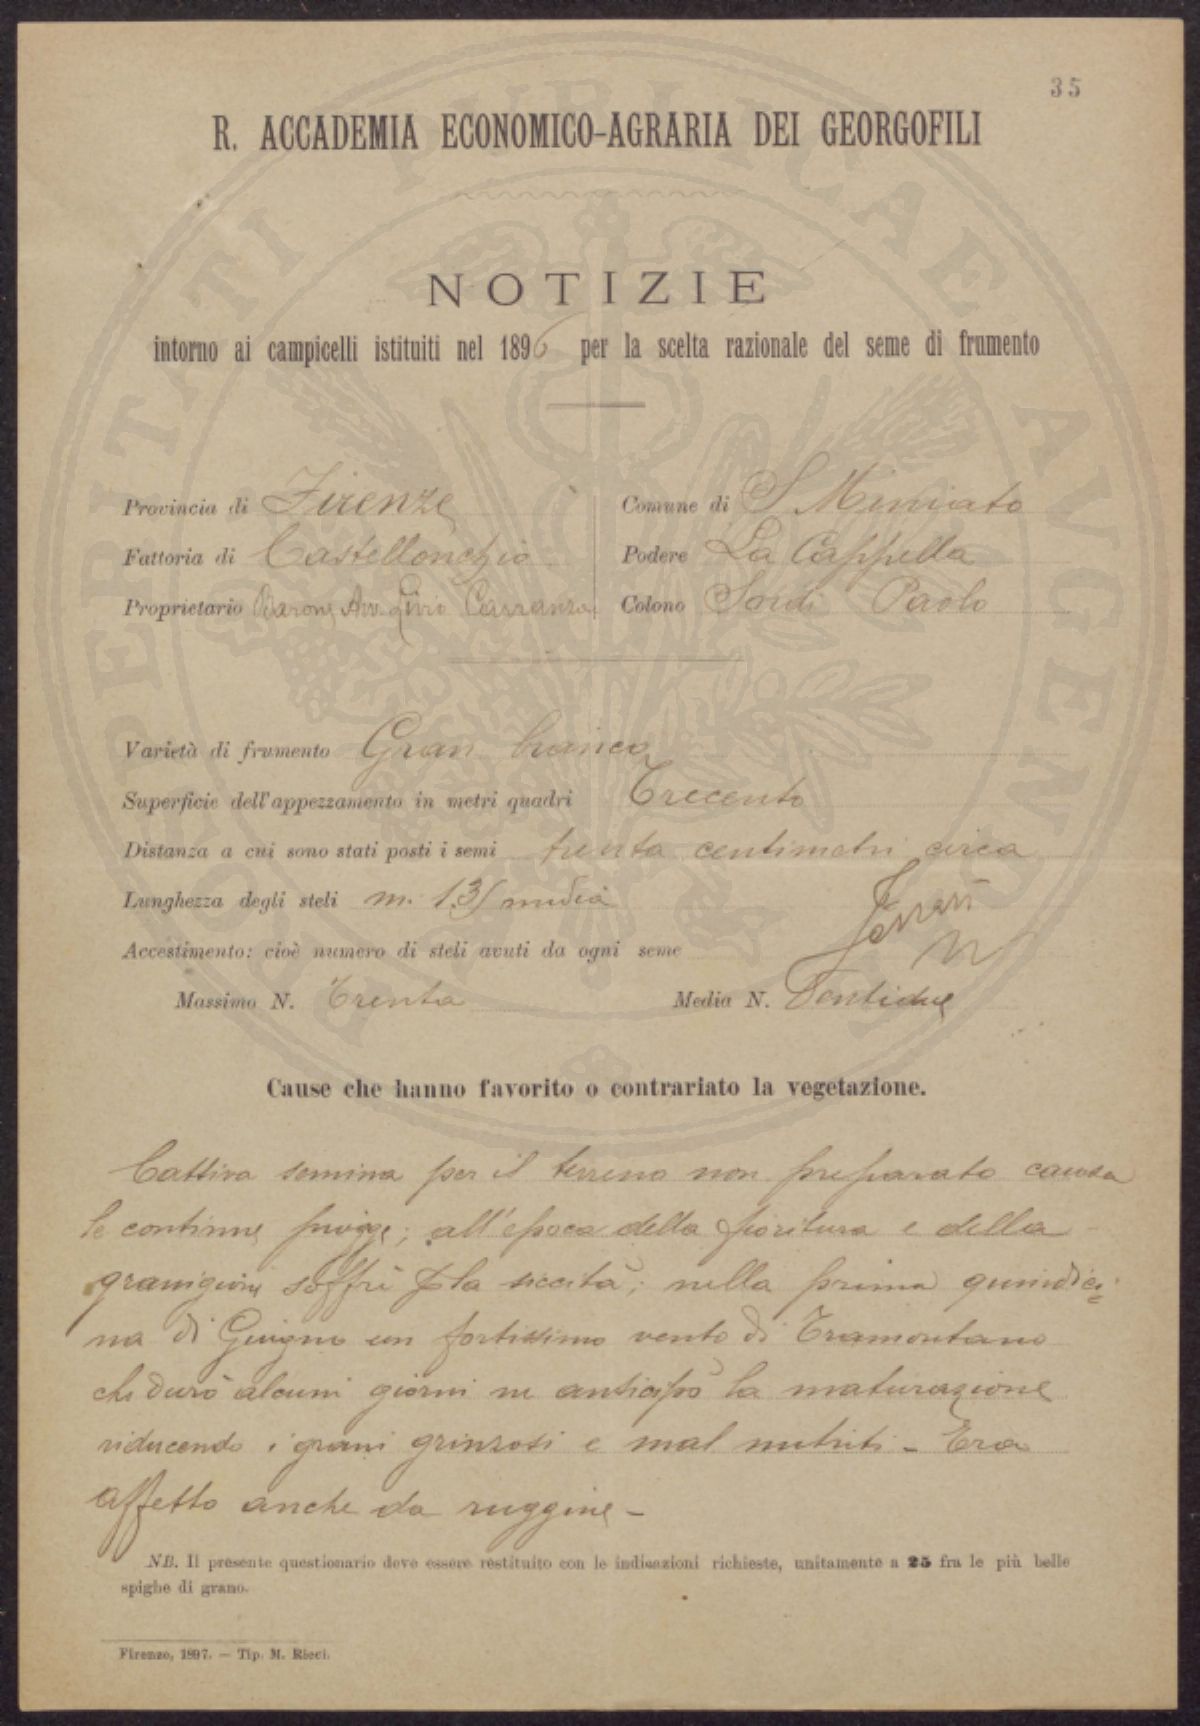 35
R. ACCADEMIA ECONOMICO-AGRARIA DEI GEORGOFILI
NOTIZIE
intorno ai campicelli istituiti nel 1896 per la scelta razionale del seme di frumento
Provincia di Firenze
Comune di S. Miniato
Fattoria di Castellonchio
Podere La Cappella
Proprietario Barone Avv. Livio Carranza
Colono Sordi Paolo
Varietà di frumento Gran bianco
Superficie dell'appezzamento in metri quadri Trecento
Distanza a cui sono stati posti i semi trenta centimetri circa
Lunghezza degli steli m. 1.35 media
Accestimento: cioè numero di steli avuti da ogni seme
Massimo N. Trenta Media N. Ventidue
Cause che hanno favorito o contrariato la vegetazione.
Cattiva semina per il terreno non preparato causa
le continue piogge; all'epoca della fioritura e della
granigione soffrì la siccità; nella prima quindici=
na di Giugno un fortissimo vento di Tramontano
che durò alcuni giorni ne anticipò la maturazione
riducendo i grani grinzosi e mal nutriti - Era
affetto anche da ruggine -
NB. Il presente questionario deve essere restituito con le indicazioni richieste, unitamente a 25 fra le più belle
spighe di grano.
Firenze, 1897. — Tip. M. Ricci.
PROSPERITATI PUBLICAE AUGENDAE